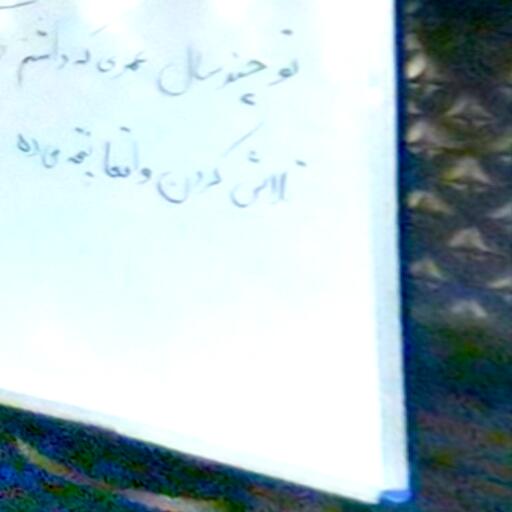 تو چند سال عمری که داشتم
تلاش کردن واقعا نتیجه می‌ده